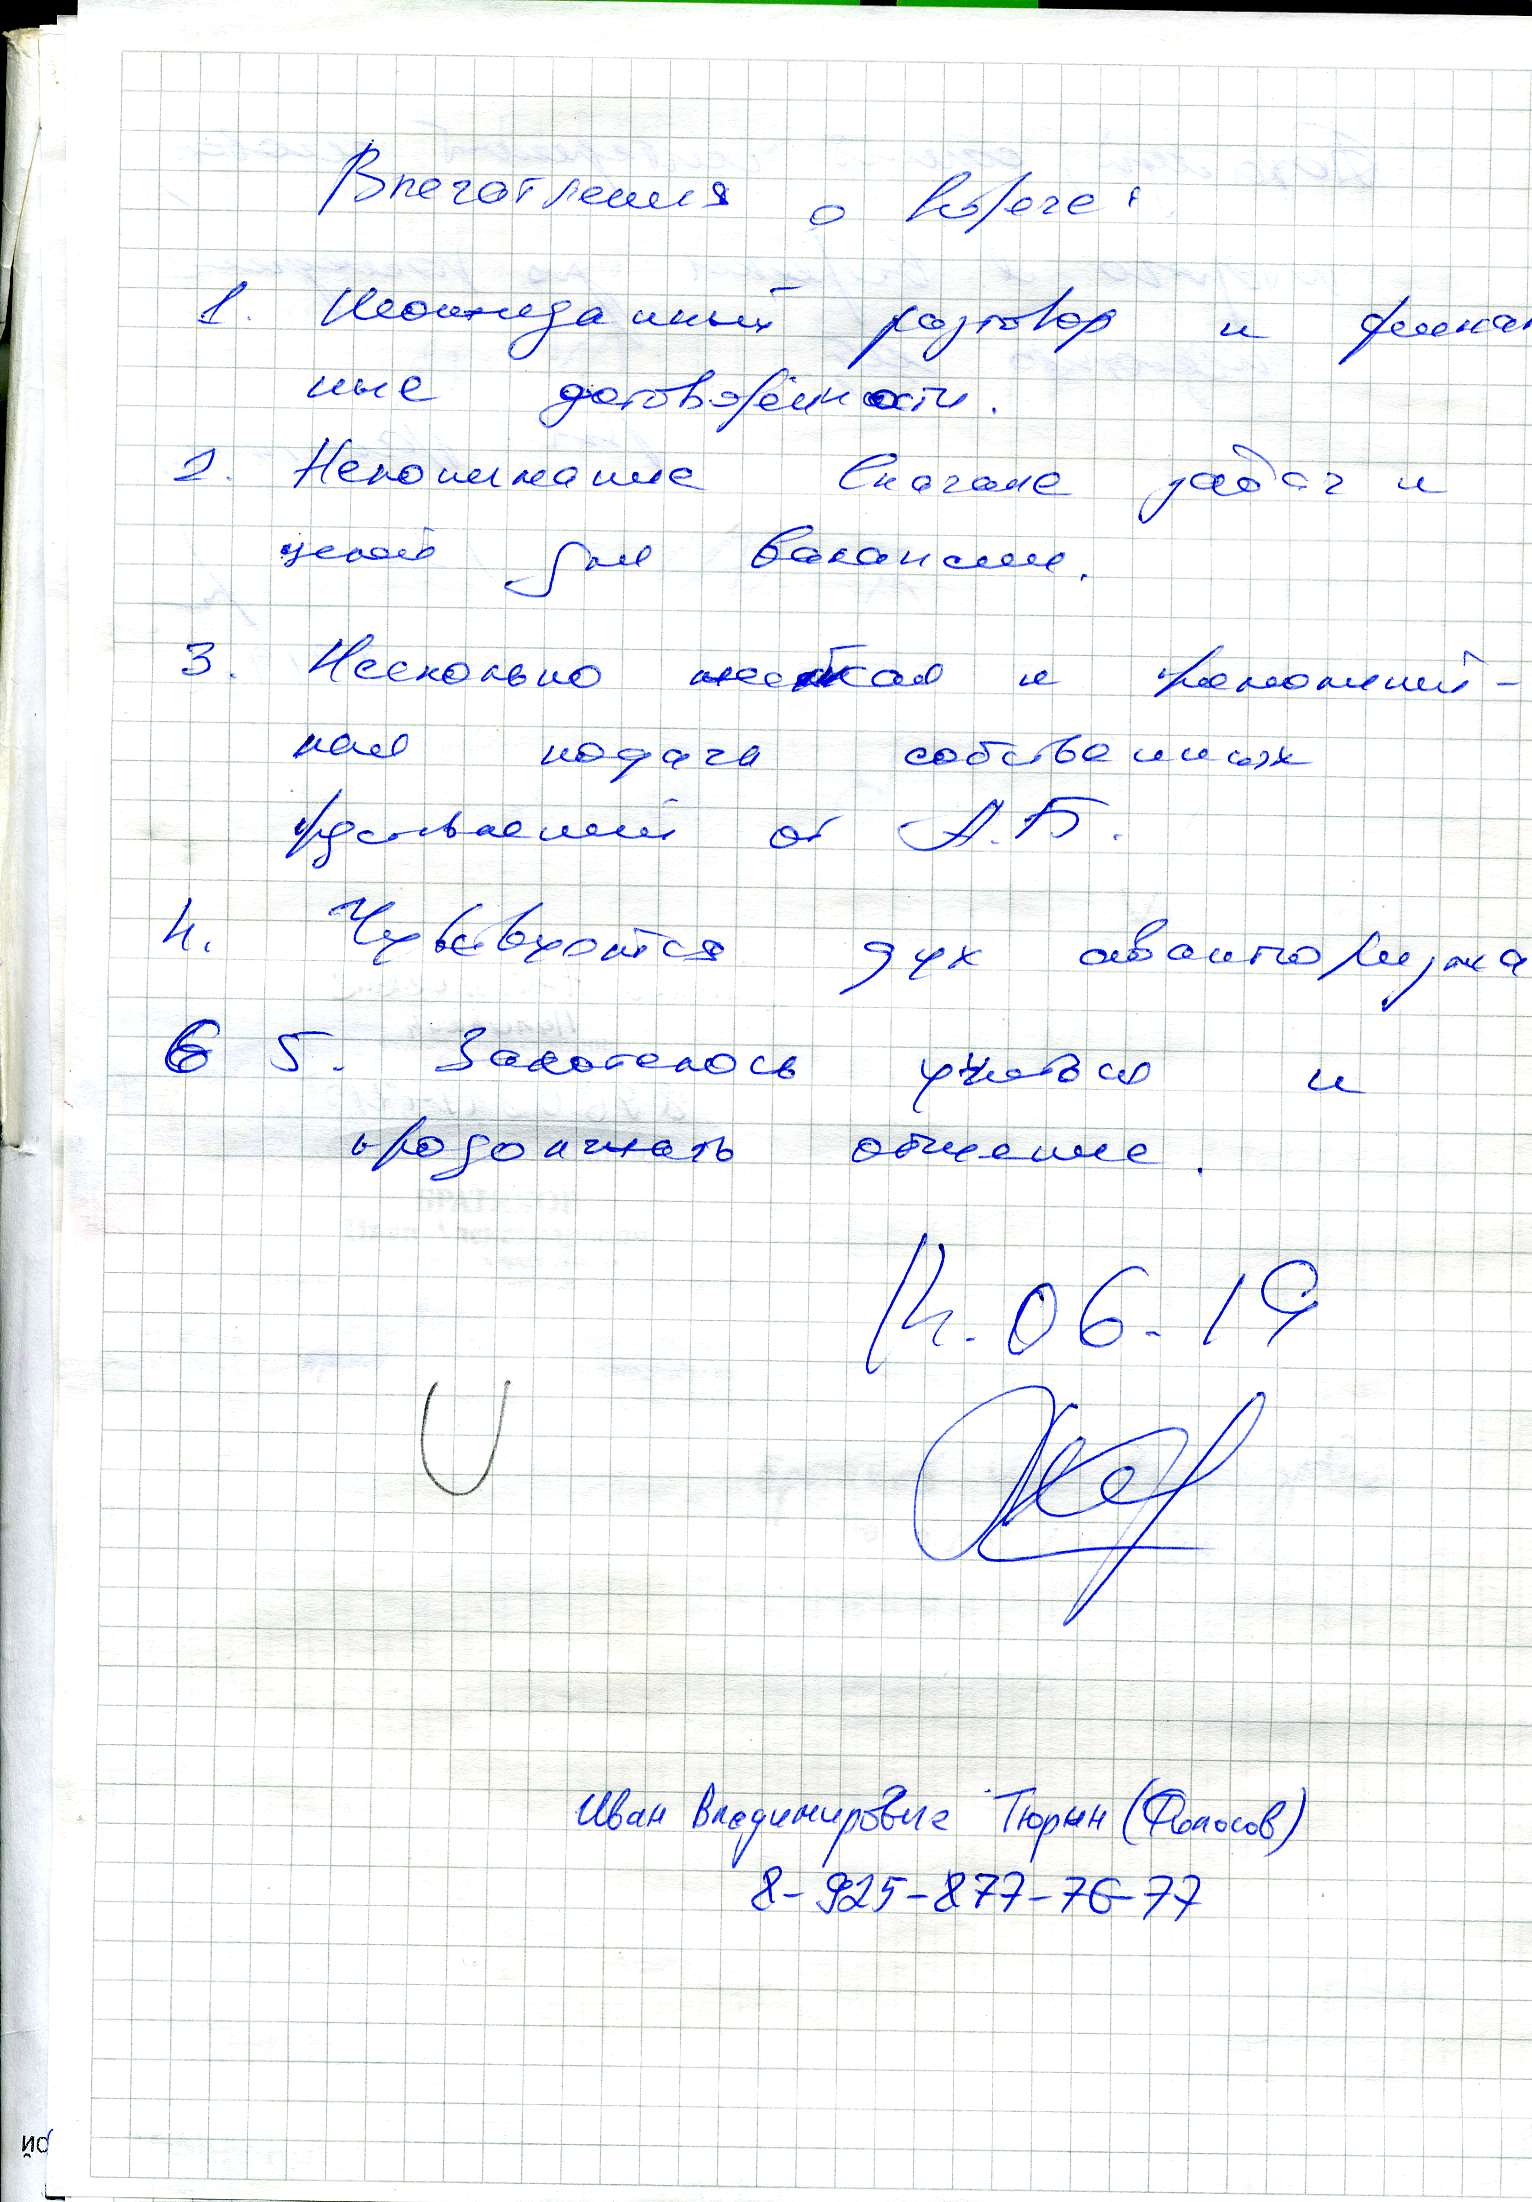 Впечатления о встрече:
1. Неожиданный разговор и финан
ные договорённости.
2. Непонимание вначале задач и
целей для вакансии.
3. Несколько жесткая и
ная подача собственных
от А.Б.
4. Чувствуется дух авантюризма
5. Захотелось учиться и
продолжать общение.
14.06.19
Иван Владимирович Тюрин (Фолосов)
8-925-877-76-77